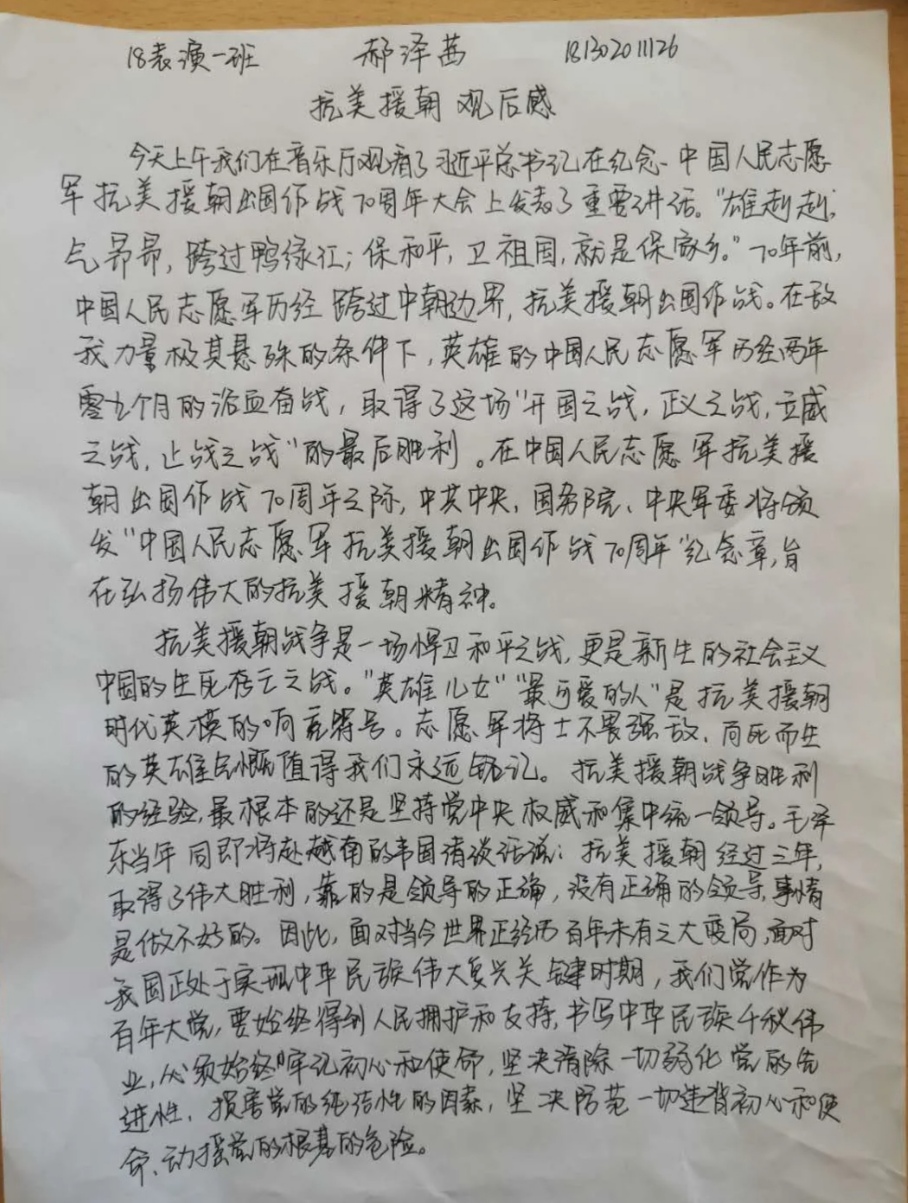 18表演一班 郝泽茜 181302011126
抗美援朝 观后感
今天上午我们在音乐厅观看了习近平总书记在纪念中国人民志愿
军抗美援朝出国作战70周年大会上发表了重要讲话。“雄赳赳,
气昂昂,跨过鸭绿江;保和平,卫祖国,就是保家乡。”70年前,
中国人民志愿军历经 跨过中朝边界,抗美援朝出国作战。在敌
我力量极其悬殊的条件下,英雄的中国人民志愿军历经两年
零九个月的浴血奋战,取得了这场“开国之战,正义之战,立威
之战,止战之战”的最后胜利。在中国人民志愿军抗美援
朝出国作战70周年之际,中共中央、国务院、中央军委将颁
发“中国人民志愿军抗美援朝出国作战70周年”纪念章,旨
在弘扬伟大的抗美援朝精神。
抗美援朝战争是一场悍卫和平之战,更是新生的社会主义
中国的生死存亡之战。“英雄儿女”“最可爱的人”是抗美援朝
时代英模的响亮符号。志愿军将士不畏强敌、向死而生
的英雄气慨值得我们永远铭记。抗美援朝战争胜利
的经验,最根本的还是坚持党中央权威和集中统一领导。毛泽
东当年同即将赴越南的韦国清谈话说:抗美援朝经过三年,
取得了伟大胜利,靠的是领导的正确,没有正确的领导,事情
是做不好的。因此,面对当今世界正经历百年未有之大变局,面对
我国正处于实现中华民族伟大复兴关键时期,我们党作为
百年大党,要始终得到人民拥护和支持,书写中华民族千秋伟
业,必须始终牢记初心和使命,坚决清除一切弱化党的先
进性、损害党的纯洁性的因素,坚决防范一切违背初心和使
命、动摇党的根基的危险。